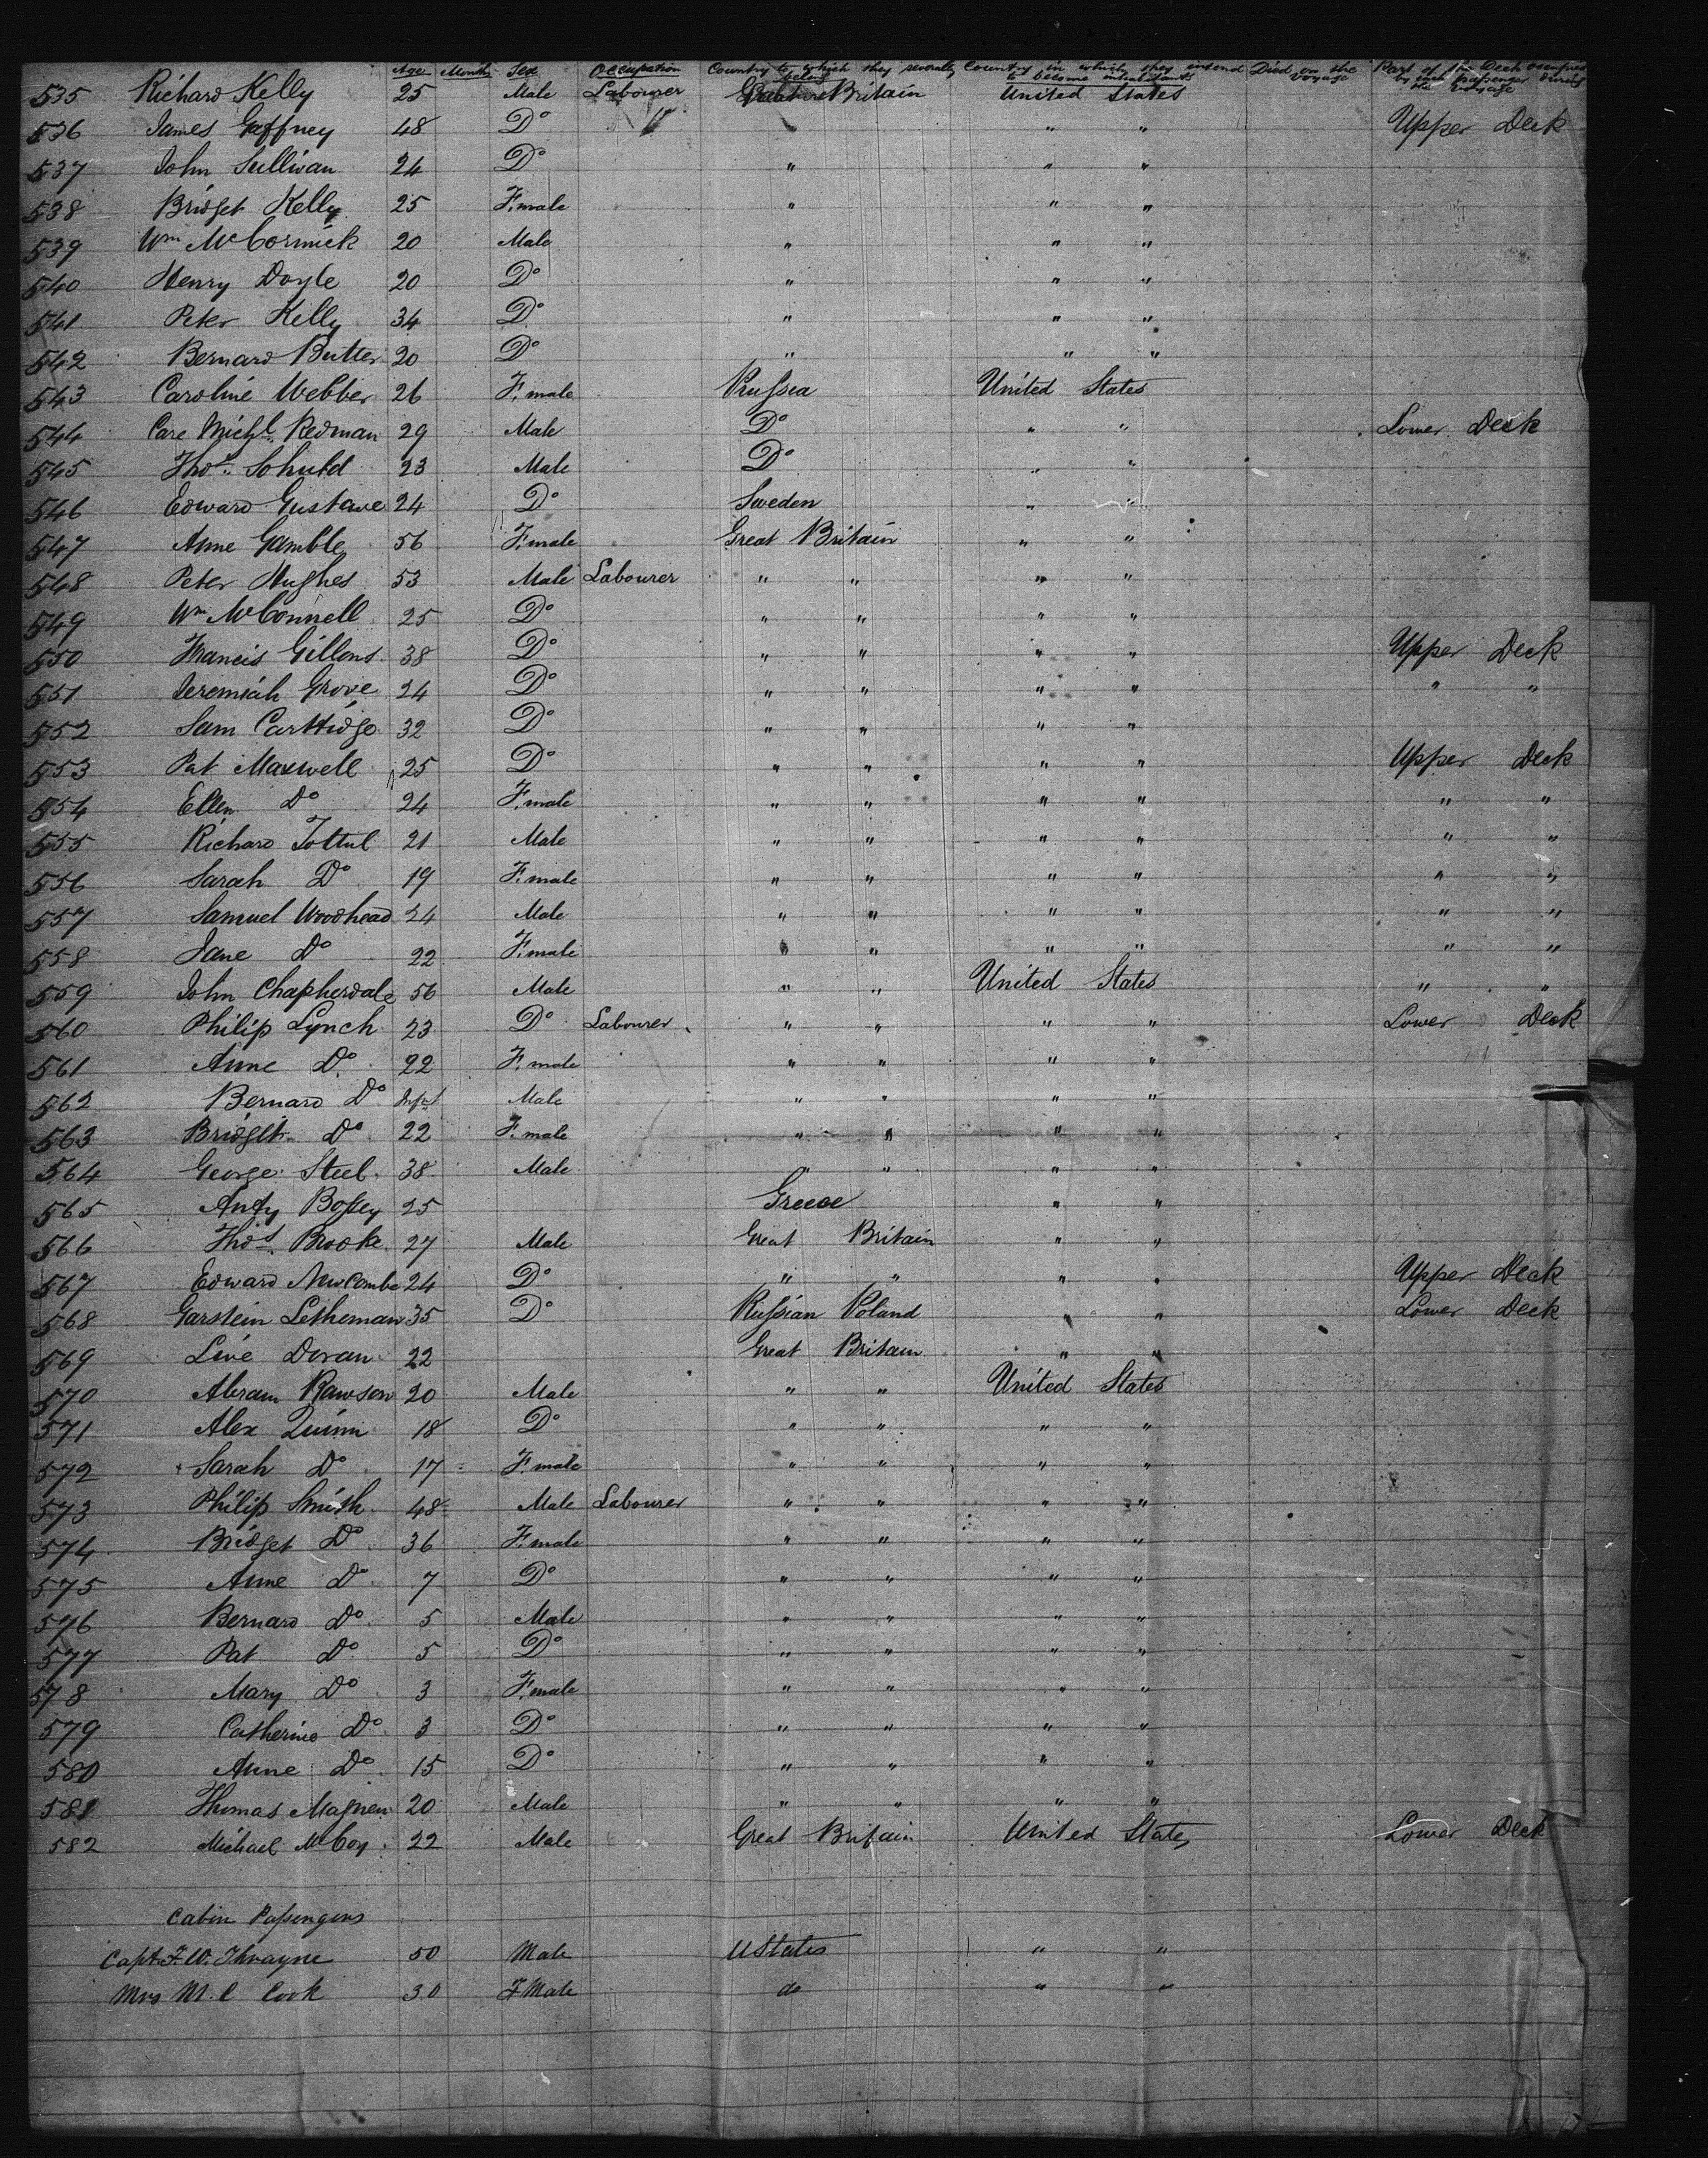 Age Months Sex Occupation Country to which they severally belong Country in which they intend to become inhabitants Died on the Voyage Part of the Deck occupied by each passenger during the voyage
535 Richard Kelly 25 Male Labourer Great Britain United States
536 James Gaffney 48 Do " " " Upper Deck
537 John Sullivan 24 Do " " "
538 Bridget Kelly 25 F.male " " "
539 Wm McCormick 20 Male " " "
540 Henry Doyle 20 Do " " "
541 Peter Kelly 34 Do " " "
542 Bernard Butter 20 Do " " "
543 Caroline Webber 26 F.male Prussia United States
544 Care Michl Redman 29 Male Do " " Lower Deck
545 Thos Schuld 23 Male Do " "
546 Edward Gustave 24 Do Sweden " "
547 Anne Gamble 56 F.male Great Britain " "
548 Peter Hughes 53 Male Labourer " " " "
549 Wm McConnell 25 Do " " " "
550 Francis Gillons 38 Do " " " " Upper Deck
551 Jeremiah Grove 24 Do " " " " " "
552 Sam Carttidge 32 Do " " " "
553 Pat Maxwell 25 Do " " " " Upper Deck
554 Ellen Do 24 F.male " " " " " "
555 Richard Tottul 21 Male " " " " " "
556 Sarah Do 19 F.male " " " " " "
557 Samuel Woodhead 24 Male " " " " " "
558 Jane Do 22 F.male " " " " " "
559 John Chapherdale 56 Male " " United States " "
560 Philip Lynch 23 Do Labourer " " " " Lower Deck
561 Anne Do 22 F.male " " " "
562 Bernard Do Inft Male " " " "
563 Bridget Do 22 F.male " " " "
564 George Steel 38 Male " " " "
565 Andy 25 Greece " "
566 Thos Brooke 27 Male Great Britain " "
567 Edward Newcombe 24 Do " " " " Upper Deck
568 Garstein Letheman 35 Do Russian Poland " " Lower Deck
569 Live Doran 22 Great Britain " "
570 Abram Rawson 20 Male " " United States
571 Alex Quinn 18 Do " " " "
572 Sarah Do 17 F.male " " " "
573 Philip Smith 48 Male Labourer " " " "
574 Bridget Do 36 F.male " " " "
575 Anne Do 7 Do " " " "
576 Bernard Do 5 Male " " " "
577 Pat Do 5 Do " " " "
578 Mary Do 3 F.male " " " "
579 Catherine Do 3 Do " " " "
580 Anne Do 15 Do " " " "
581 Thomas Magnen 20 Male " " " "
582 Michael McCoy 22 Male Great Britain United States Lower Deck
Cabin Passengers
Capt F. W. 50 Male U States " "
Mrs M. C Cook 30 F Male do " "